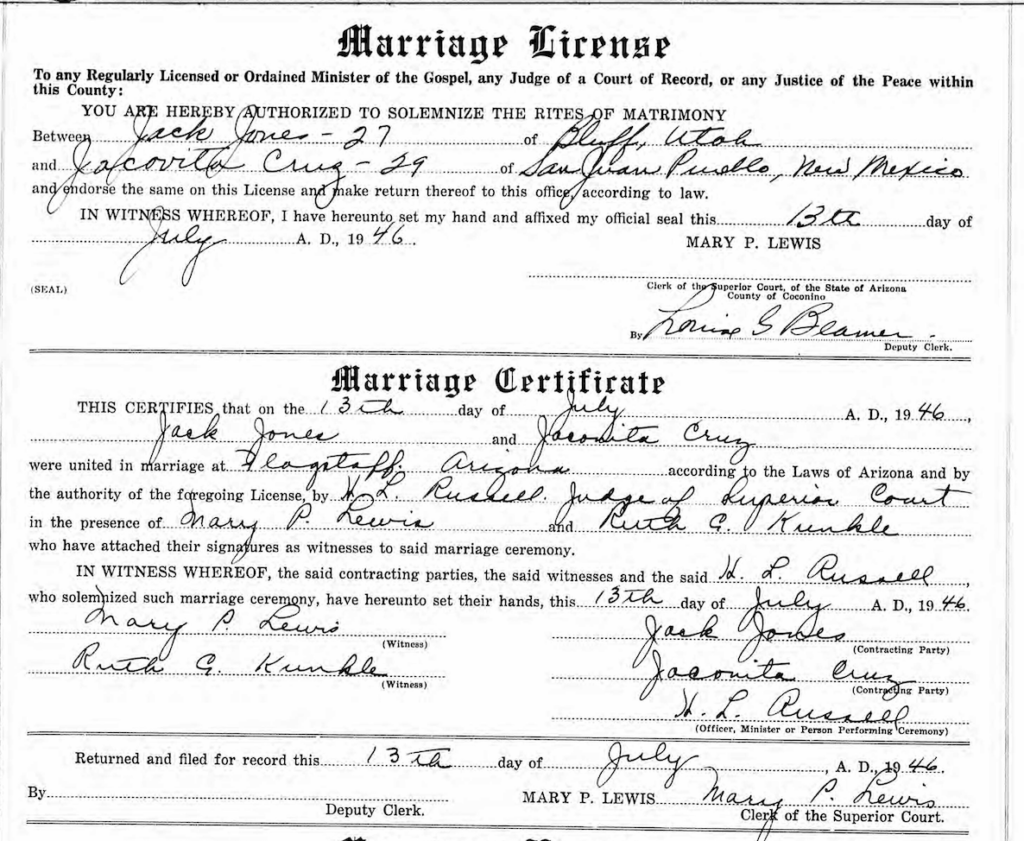 Marriage License
To any Regularly Licensed or Ordained Minister of the Gospel, any Judge of a Court of Record, or any Justice of the Peace within
this County:
YOU ARE HEREBY AUTHORIZED TO SOLEMNIZE THE RITES OF MATRIMONY
Between Jack Jones - 27 of Bluff, Utah
and Jacovita Cruz - 29 of San Juan Pueblo, New Mexico
and endorse the same on this License and make return thereof to this office, according to law.
IN WITNESS WHEREOF, I have hereunto set my hand and affixed my official seal this 13th day of
July A. D., 1946.
MARY P. LEWIS
(SEAL)
Clerk of the Superior Court, of the State of Arizona
County of Coconino
By Louise G Beamer.
Deputy Clerk.
Marriage Certificate
THIS CERTIFIES that on the 13th day of July A. D., 1946,
Jack Jones and Jaconita Cruz
were united in marriage at Flagstaff, Arizona according to the Laws of Arizona and by
the authority of the foregoing License, by H. L. Russell, Judge of Superior Court
in the presence of Mary P. Lewis and Ruth G. Kunkle
who have attached their signatures as witnesses to said marriage ceremony.
IN WITNESS WHEREOF, the said contracting parties, the said witnesses and the said H. L. Russell,
who solemnized such marriage ceremony, have hereunto set their hands, this 13th day of July A. D., 1946.
Mary P. Lewis
(Witness)
Jack Jones
(Contracting Party)
Ruth G. Kunkle
(Witness)
Jaconita Cruz
(Contracting Party)
H. L. Russell
(Officer, Minister or Person Performing Ceremony)
Returned and filed for record this 13th day of July, A. D., 1946.
By
Deputy Clerk.
MARY P. LEWIS Mary P. Lewis
Clerk of the Superior Court.